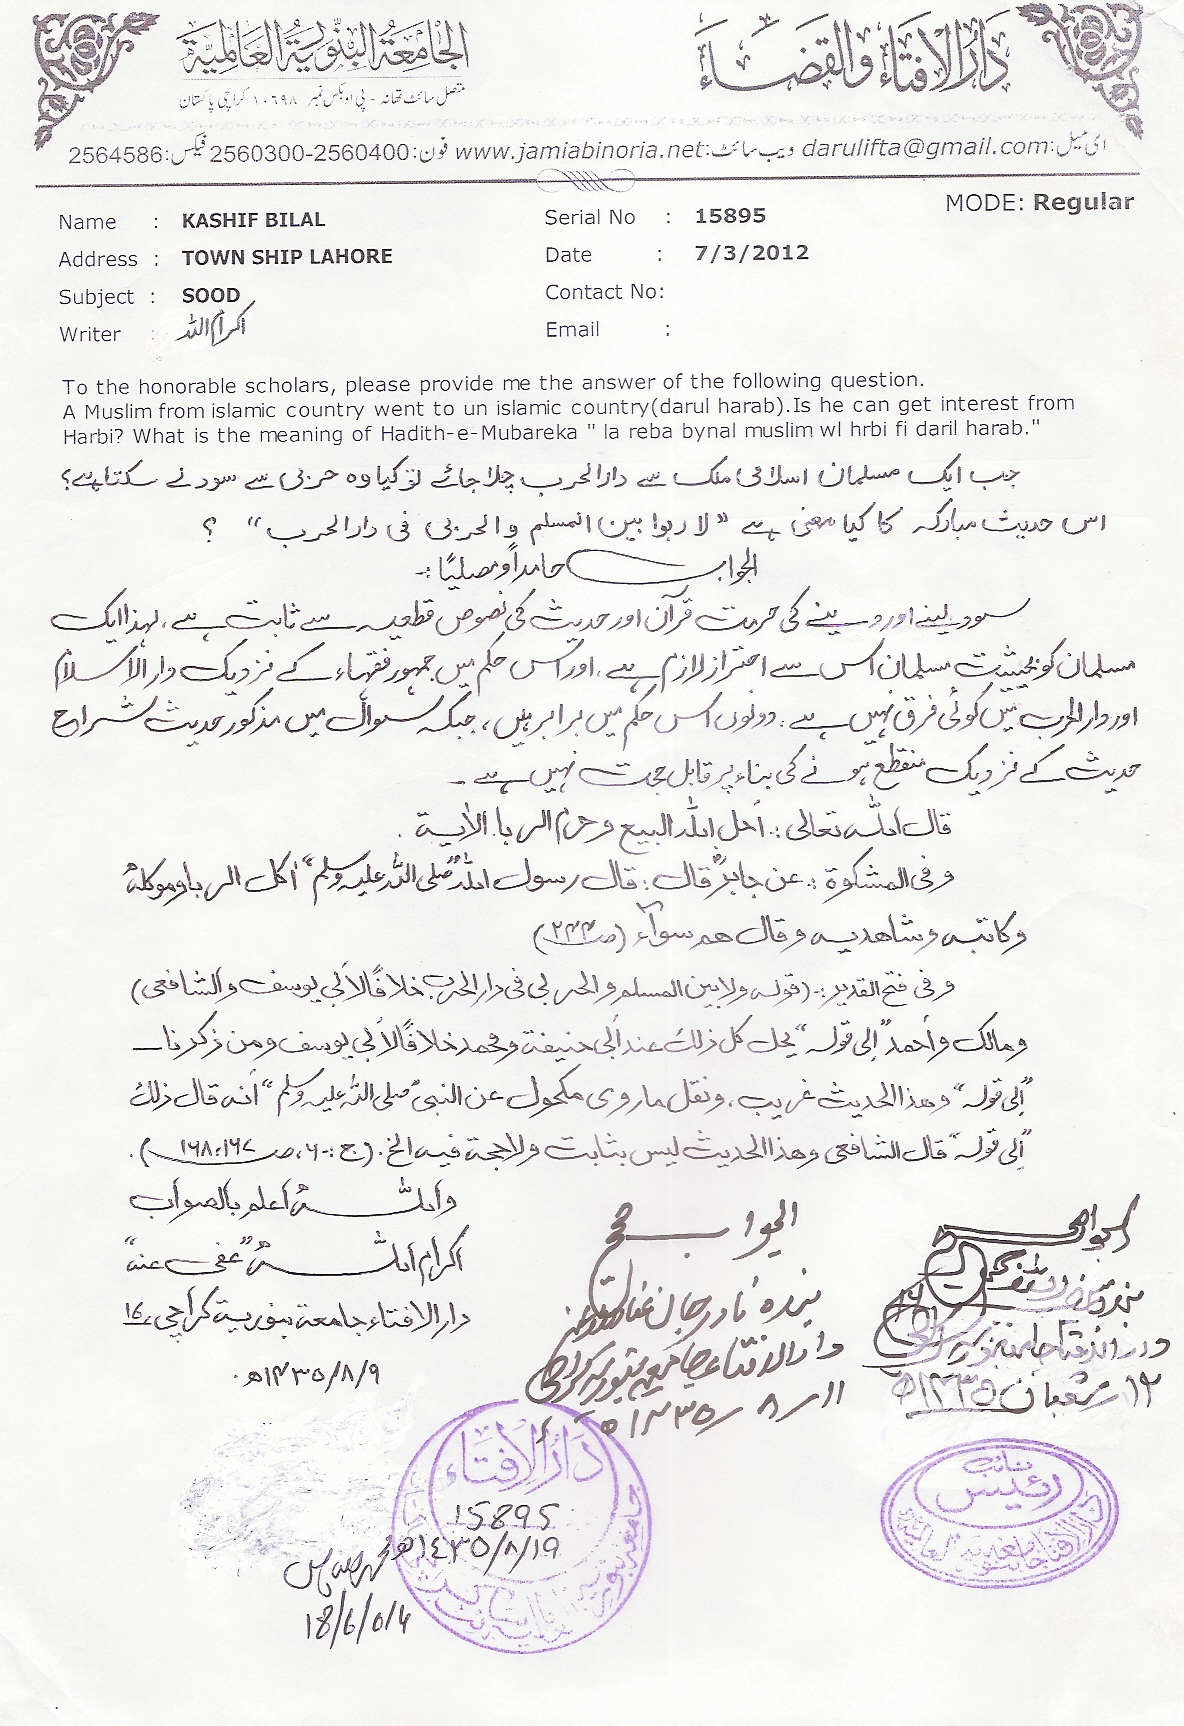 دَارُ الإفتَاء وَالقضَاء
الجَامعَة البِنّورِيَّة العَالميَّة
متصل سائٹ تھانہ - پی او بکس نمبر ۱۰۶۹۸ کراچی پاکستان
ای میل:darulifta@gmail.com ویب سائٹ:www.jamiabinoria.net فون:2560300-2560400 فیکس:2564586
MODE: Regular
Name : KASHIF BILAL
Serial No : 15895
Address : TOWN SHIP LAHORE
Date : 7/3/2012
Subject : SOOD
Contact No:
Writer : اکرام اللہ
Email :
To the honorable scholars, please provide me the answer of the following question.
A Muslim from islamic country went to un islamic country(darul harab).Is he can get interest from
Harbi? What is the meaning of Hadith-e-Mubareka " la reba bynal muslim wl hrbi fi daril harab."
جب ایک مسلمان اسلامی ملک سے دارالحرب چلا جائے تو کیا وہ حربی سے سود لے سکتا ہے؟
اس حدیث مبارکہ کا کیا معنی ہے "لا ربوا بین المسلم و الحربی فی دارالحرب" ؟
الجواب حامداً ومصلیًا :-
سود لینے اور دینے کی حرمت قرآن اور حدیث کی نصوص قطعیہ سے ثابت ہے، لہذا ایک
مسلمان کو بحیثیت مسلمان اس سے احتراز لازم ہے، اور اس حکم میں جمہور فقہاء کے نزدیک دار الاسلام
اور دار الحرب میں کوئی فرق نہیں ہے، دونوں اس حکم میں برابر ہیں، جبکہ سوال میں مذکور حدیث شراح
حدیث کے نزدیک منقطع ہونے کی بناء پر قابل حجت نہیں ہے۔
قال اللہ تعالی :- أحل اللہ البیع و حرم الربا. الاٰیة .
و فی المشکوٰة :- عن جابرؓ قال : قال رسول اللہ "صلی اللہ علیہ وسلم" اٰکل الربا وموکلهٗ
و کاتبه و شاهدیه و قال هم سوآء (صـ۲۴۴)
و فی فتح القدیر :- (قوله ولا بین المسلم و الحربی فی دار الحرب خلافًا لأبی یوسف و الشافعی)
و مالك و أحمد "إلی قوله" یحل کل ذلك عند أبی حنیفة و محمد خلافًا لأبی یوسف و من ذکرنا۔
"إلی قوله" و هذا الحدیث غریب، و نقل ما روی مکحول عن النبی "صلی اللہ علیہ وسلم" أنه قال ذلك
"إلی قوله" قال الشافعی و هذا الحدیث لیس بثابت و لا حجة فیه الخ. (ج :-۶، صـ ۱۶۷،۱۶۸).
و اللہ أعلم بالصواب
اکرام اللہ "عفی عنه"
دار الافتاء جامعه بنوریة کراچی ۱۶
۹/۸/۱۴۳۵ھ
الجواب صحیح
بندہ نادر جان
دار الافتاء جامعہ بنوریہ کراچی
۱۱/۸/۱۴۳۵ھ
الجواب صحیح
بندہ
دار الافتاء جامعہ بنوریہ کراچی
۱۲ شعبان ۱۴۳۵ھ
دَارُ الإفتَاء
15895
۱۴۳۵/۸/۱۹ھ
18/6/014
نائب
رئیس
دار الافتاء جامعہ بنوریہ العالمیہ